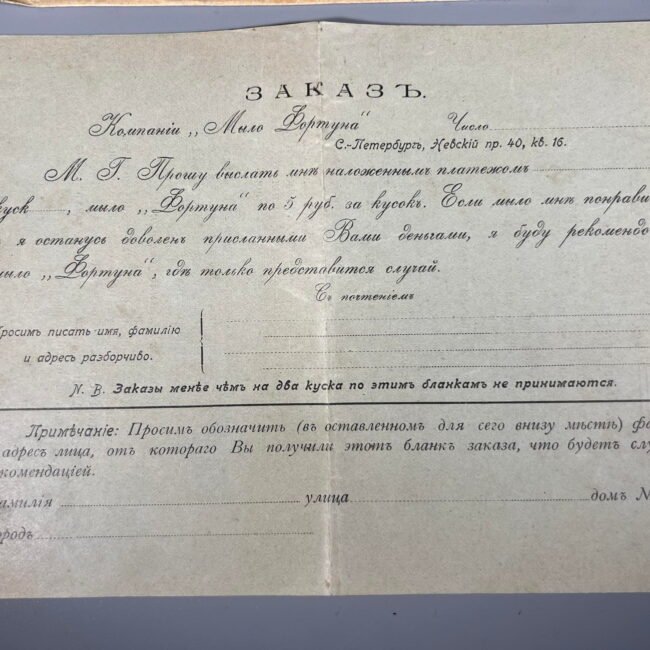 ЗАКАЗЪ.
Компаніи „Мыло Фортуна“ Число
С.-Петербургъ, Невскій пр. 40, кв. 16.
М. Г. Прошу выслать мнѣ наложеннымъ платежомъ
куск , мыло „Фортуна“ по 5 руб. за кусокъ. Если мыло мнѣ понрави
я останусь доволенъ присланными Вами деньгами, я буду рекомендо
мыло „Фортуна“, гдѣ только представится случай.
Съ почтеніемъ
просимъ писать имя, фамилію
и адресъ разборчиво.
N. B. Заказы менѣе чѣмъ на два куска по этимъ бланкамъ не принимаются.
Примѣчаніе: Просимъ обозначить (въ оставленномъ для сего внизу мѣстѣ) фа
адресъ лица, отъ котораго Вы получили этотъ бланкъ заказа, что будетъ слу
комендаціей.
амилія улица домъ №
ородъ